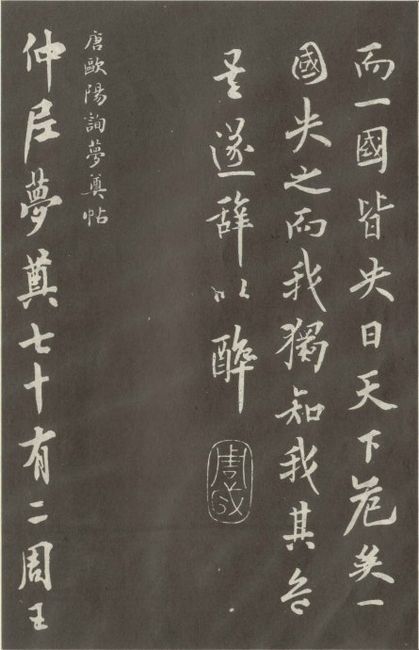 而一國皆失日天下危矣一
國失之而我獨知我其危
矣遂辭以醉
唐歐陽詢夢奠帖
仲尼夢奠七十有二周王